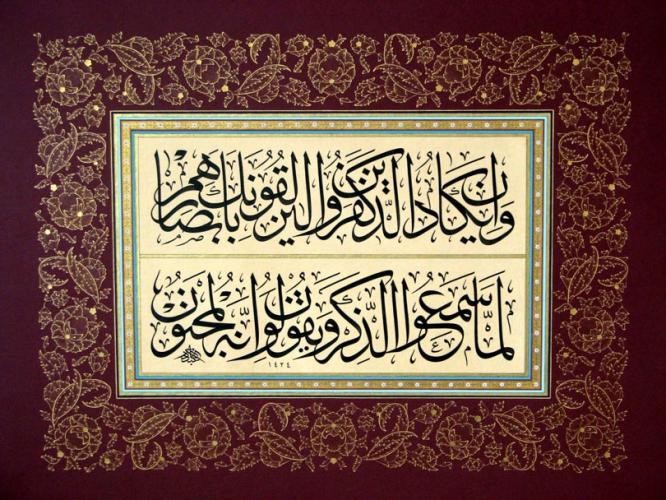 وَإِن يَكَادُ الَّذِينَ كَفَرُوا لَيُزْلِقُونَكَ بِأَبْصَارِهِمْ
لَمَّا سَمِعُوا الذِّكْرَ وَيَقُولُونَ إِنَّهُ لَمَجْنُونٌ
١٤٢٤